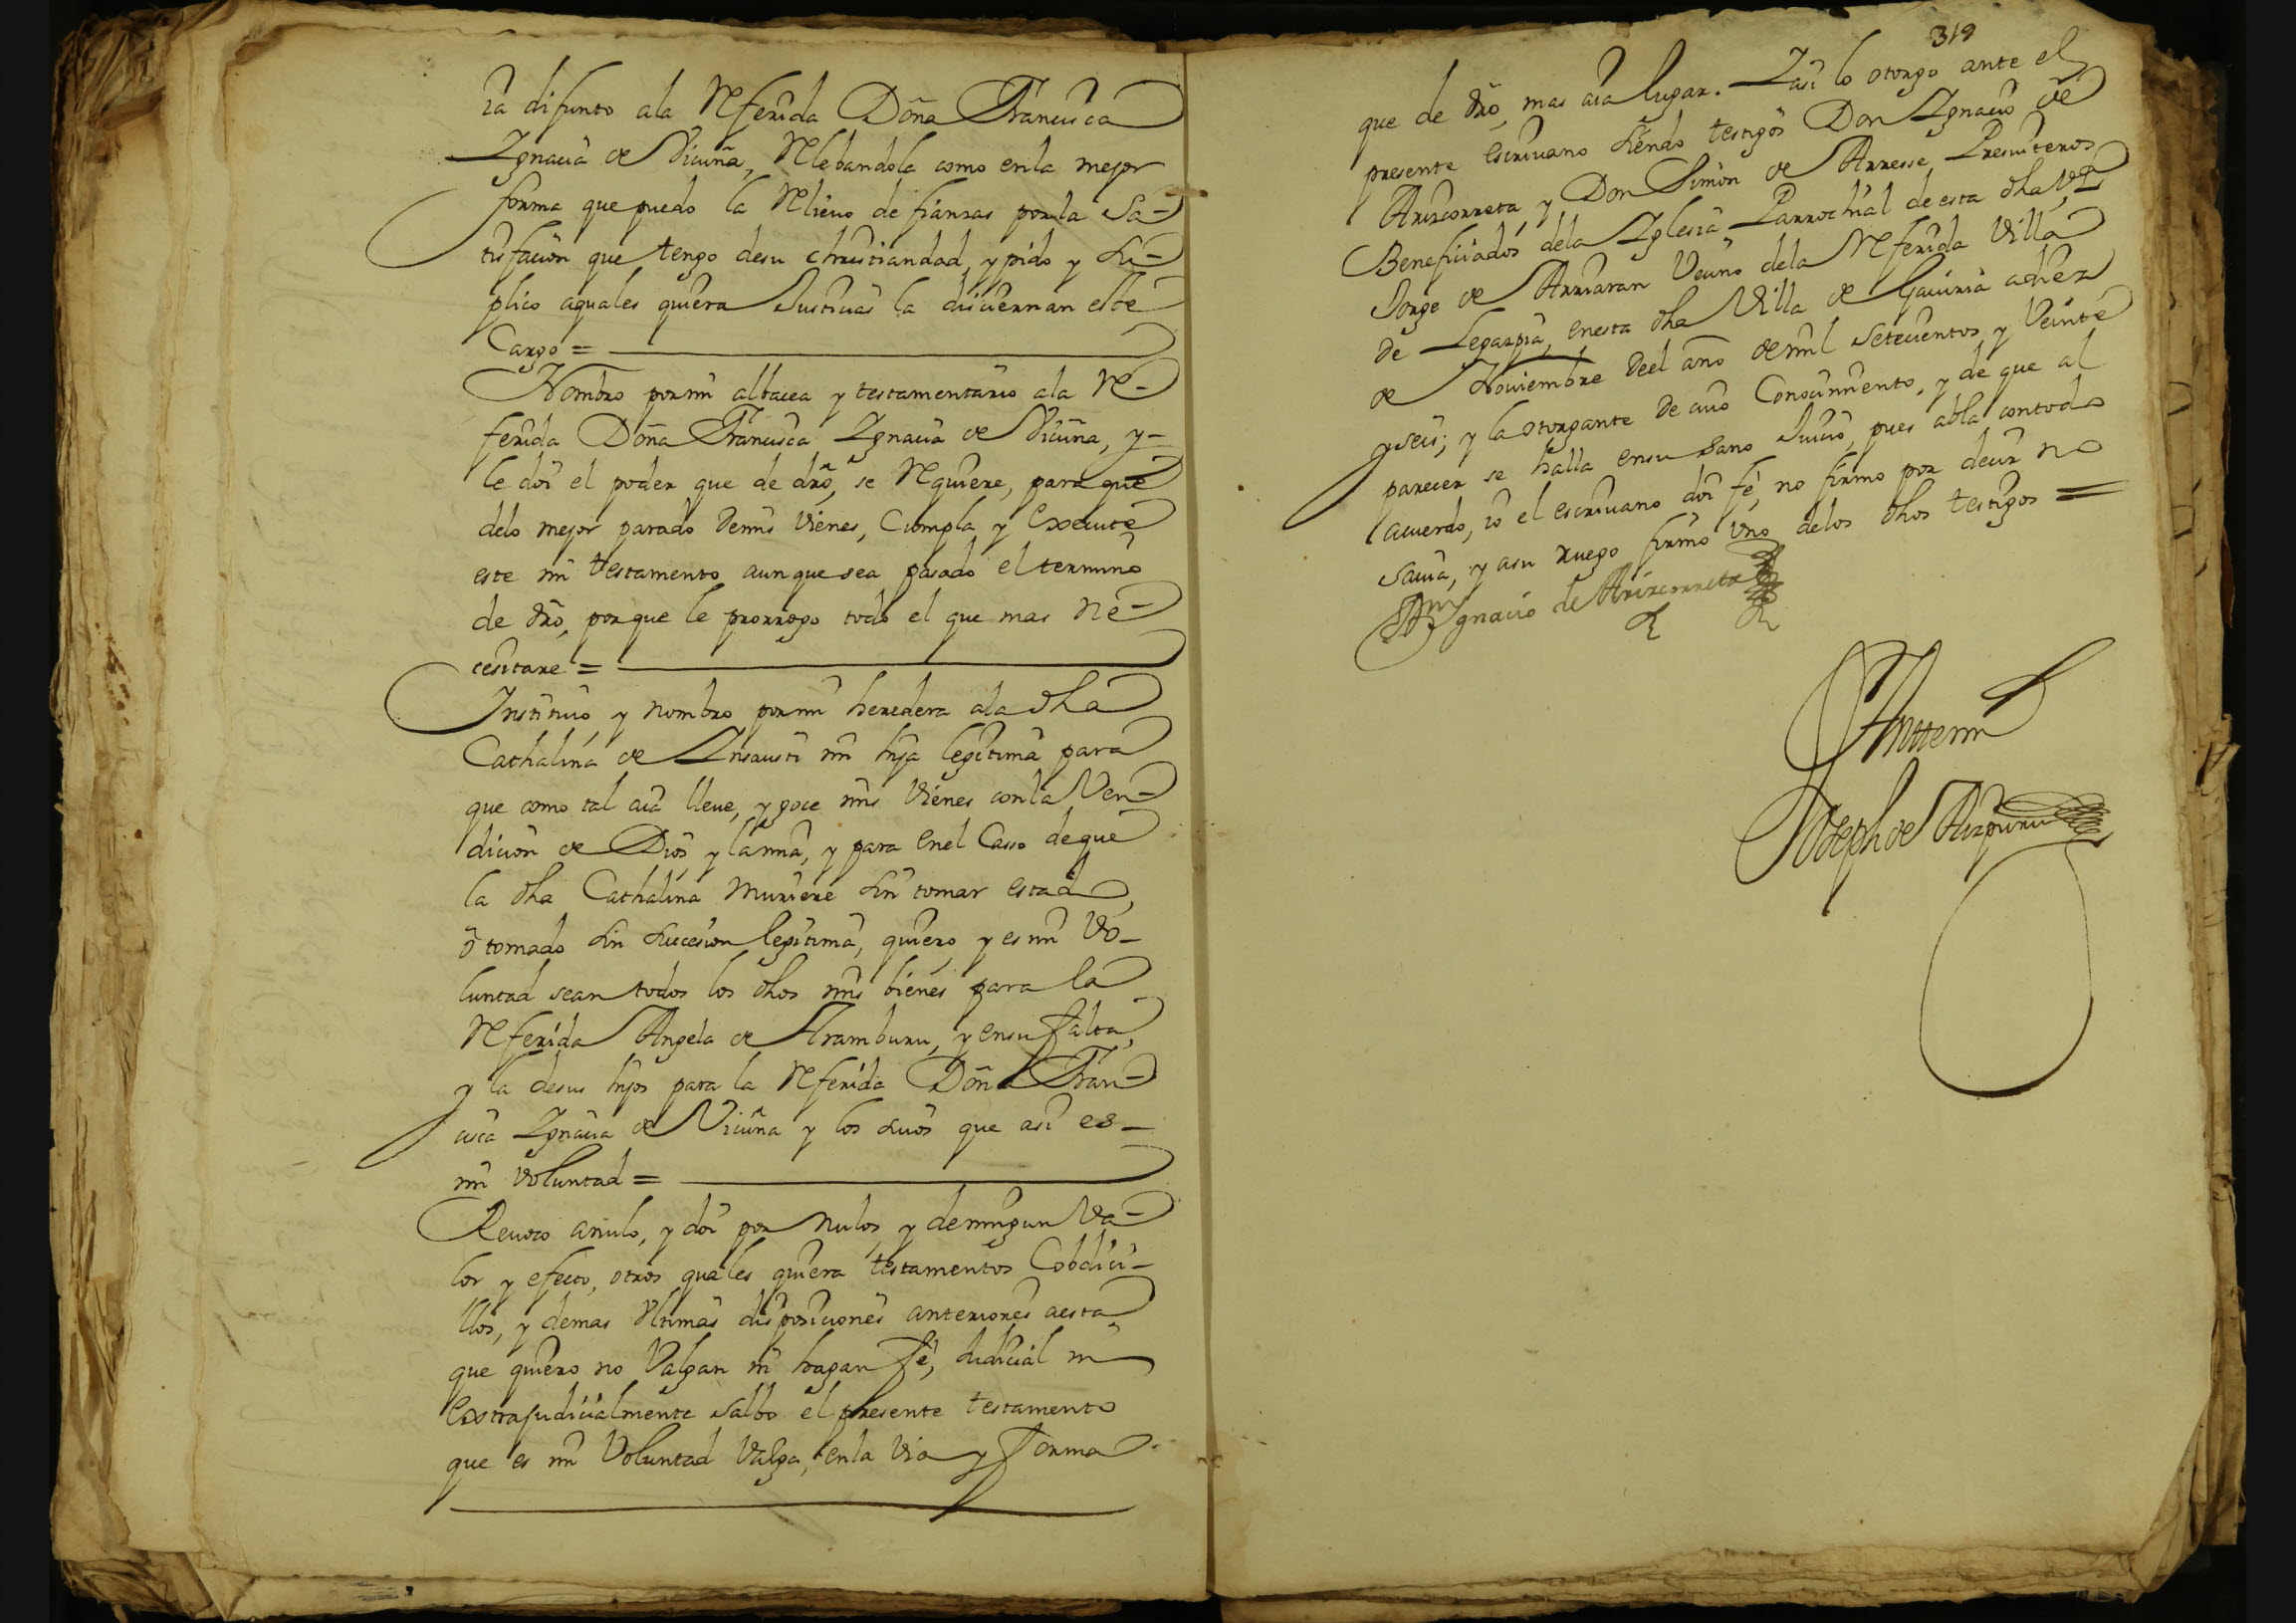 ra difunto ala Referida Doña Francisca
Ignacia de Vicuña, Relebandola como enla mejor
forma que puedo la Relievo de fianzas por la Sa-
tisfacion que tengo desu christiandad, y pido y su-
plico aquales quiera Justicias la disciernan este
Cargo =
Nombro por mi albacea y testamentario ala Re-
ferida Doña Francisca Ignacia de Vicuña, y-
le doi el poder que de dro, se Requiere, para que
delo mejor parado demis vienes, Cumpla y Execute
este mi testamento aunque sea pasado el termino
de dro, porque le prorrogo todo el que mas Ne-
cesitare =
Instituio y nombro por mi heredera ala dha
Cathalina de Insausti mi hija legitima para
que como tal aia lleue, y goce mis vienes con la Ven-
dicion de Dios y la mia, y para enel Casso deque
la dha Cathalina muriere sin tomar estado,
ô tomado sin subcesion legitima, quiero, y es mi vo-
luntad sean todos los dhos mis bienes para la
Referida Angela de Aramburu, y ensu falta,
y la desus hijos para la Referida Doña Fran-
cisca Ignacia de Vicuña y los suios que asi es-
mi voluntad =
Reuoco anulo, y doi por nulos, y deningun va-
lor y efecto, otros quales quiera testamentos Cobdici-
llos, y demas vltimas disposiciones anteriores aesta,
que quiero no Valgan ni hagan fe, Judicial ni
Extrajudicialmente salbo el presente testamento
que es mi Voluntad Valga, enla via y forma
319
que de dro, mas aia lugar. Iasi lo otorgo ante el
presente escriuano siendo testigos Don Ignacio de
Arizcorreta, y Don Simon de Arresse Presuiteros
Beneficiados dela Iglesia Parrochial de esta dha va
Jorge de Arriaran Vecino dela Referida Villa
de Legazpia, enesta dha Villa de Gauiria adiez
de Nouiembre deel año demil setecientos y Veinte
yseis; y la otorgante de cuio Conocimiento, y de que al
parecer se halla ensu sano Juicio, pues abla contodo
acuerdo, io el escriuano doi fe, no firmo por decir no
sauia, y asu ruego firmo vno delos dhos testigos =
Dn Ignacio de Arizcorreta
Antemi
Joseph de Aizpuru